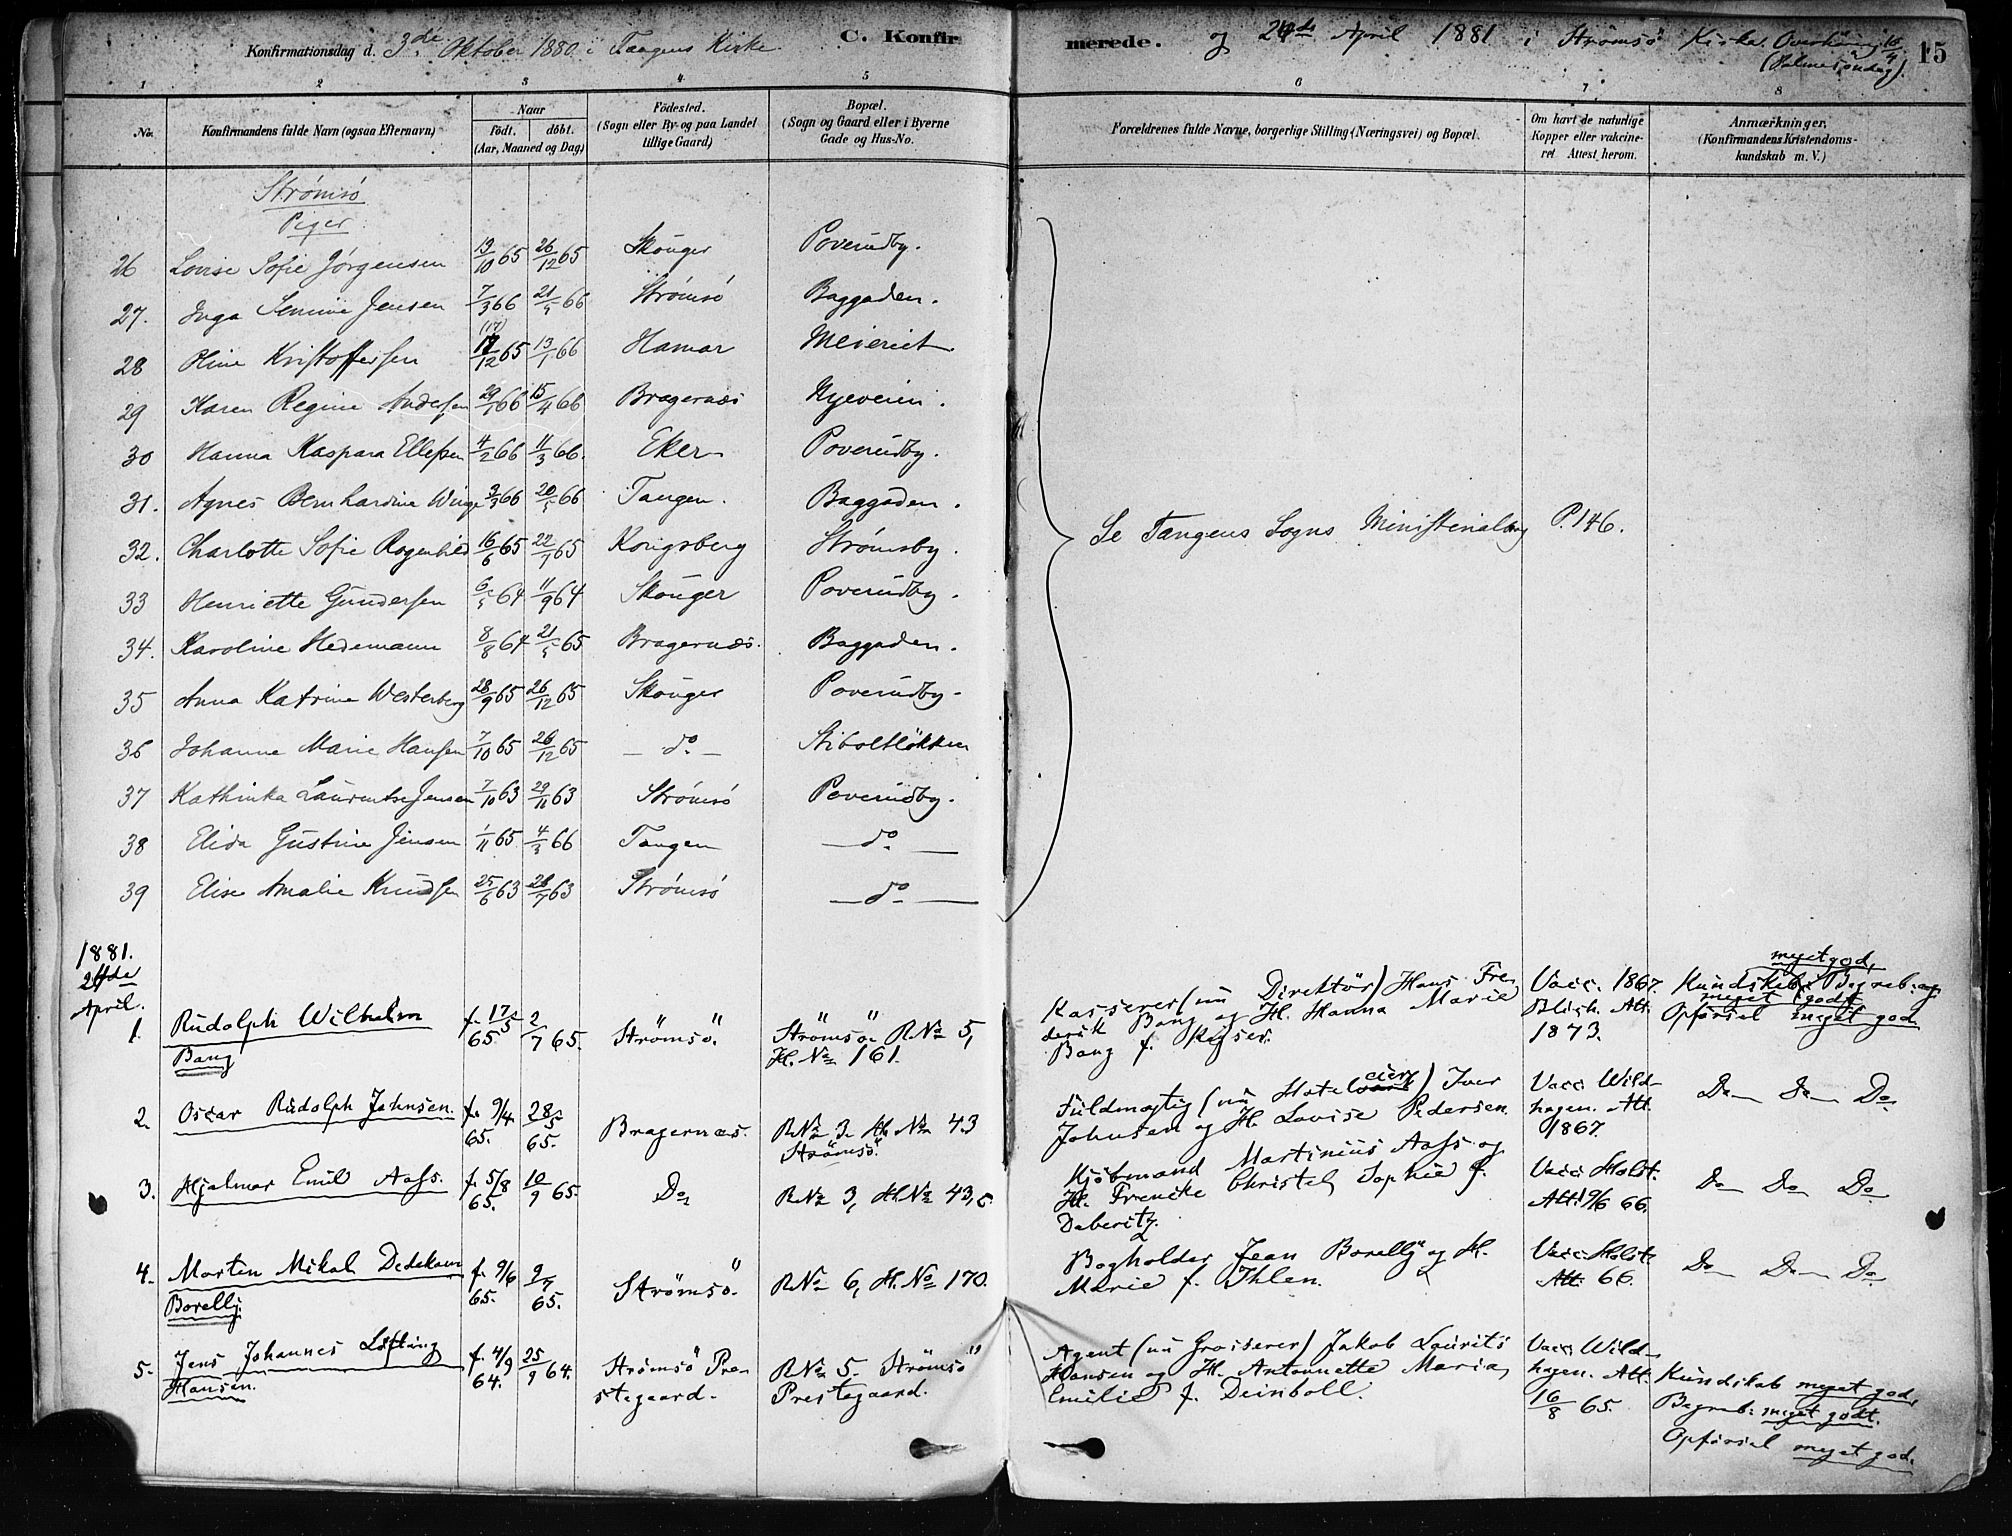 Konfirmationsdag d. 3de Oktober 1880 i Tangens Kirke C. Konfirmerede. og 24de April 1881 i Strømsö Kirke. Overhöring 10/4 (Palmesöndag). 15
1 2 3 4 5 6 7 8
No. Konfirmandens fulde Navn (ogsaa Efternavn) Naar födt. döbt. (Aar, Maaned og Dag) Födested. (Sogn eller By- og paa Landet tillige Gaard) Bopæl. (Sogn og Gaard eller i Byerne Gade og Hus-No. Forældrenes fulde Navne, borgerlige Stilling (Næringsvei) og Bopæl. Om havt de naturlige Kopper eller vakcineret Attest herom. Anmærkninger. (Konfirmandens Kristendomskundskab m. V.)
Strömsö
Piger
26 Lovise Sofie Jörgensen 13/10 65 26/12 65 Skouger Poverudby.
27. Inga Semine Jensen 7/3 66 21/5 66 Strömsö Baggaden.
28 Oline Kristoffersen (17) 17/12 65 13/1 66 Hamar Meieriet.
29 Karen Regine Andersen 29/1 66 15/4 66 Bragernæs Nyeveien.
30 Hanna Kaspara Ellefsen 4/2 66 11/3 66. Eker Poverudby.
31. Agnes Bernhardine Winge 3/3 66 20/5 66 Tangen. Baggaden.
32. Charlotte Sofie Rogenhild 16/6 65 22/7 65 Kongsberg Strömsby.
Se Tangens Sogns Ministerialbog P. 146.
33 Henriette Gundersen 6/5 64 11/9 64 Skouger Poverudby.
34. Karoline Hedemann 8/8 64 21/5 65 Bragernæs. Baggaden.
35 Anna Katrine Westerberg 28/9 65 26/12 65 Skouger Poverudby.
36 Johanne Marie Hansen 7/10 65 26/12 65 — do. — Stiboltlökken
37 Kathinka Laurentse Jensen 7/10 63 29/11 63 Strömsö Poverudby.
38 Elida Gustine Jensen 1/11 65 4/3 66 Tangen — do. —
39 Elise Amalie Knudsen 25/6 63 26/7 63 Strömsö — do. —
1881.
24de
April.
1. Rudolph Wilhelm f. 17/5 2/7 65. Strömsö. Strömsö R No 5,
Bang 65 H. No 161.
Kasserer (nu Direktör) Hans Fre-
derik Bang og H. Hanna Marie
Bang f. Kyser.
Vacc. 1867.
Bligh. Att.
1873.
meget god,
Kundskab: Begreb: og
meget godt
Opförsel meget god
2. Oscar Rudolph Johnsen. f. 9/4 65. 28/5 65. Bragernæs. R No 3. H. No 43
Strömsö.
Fuldmægtig (nu Hotelcier) Iver
Johnsen og H. Lovise Pedersen.
Vacc. Wild-
hagen. Att.
1867.
Do Do Do
3. Hjalmar Emil Aass. f. 5/8 65. 10/9 65. Do R No 3, H No 43,
Kjöbmand Martinius Aass og
H. Frencke Christel Sophie f.
Daberitz.
Vacc. Holst.
Att. 19/6 66.
Do Do Do
4. Morten Mikal Dedekam f. 9/6 65. 9/7 65. Strömsö. R No 6, H. No 170.
Borelly.
Bogholder Jean Borelly og H.
Marie f. Ihlen.
Vacc. Holst.
Att. 66.
Do Do Do
5. Jens Johannes Löfting f. 4/9 64. 25/9 64. Strömsö Pre- R No 5. Strömsö
Hansen. stegaard. Prestegaard.
Agent (nu Grosserer) Jakob Laurits
Hansen og H. Antonnette Maria
Emilie f. Deinboll.
Vacc. Wild-
hagen. Att.
16/8 65.
Kundskab meget god,
Begreb: meget godt.
Opförsel meget god.